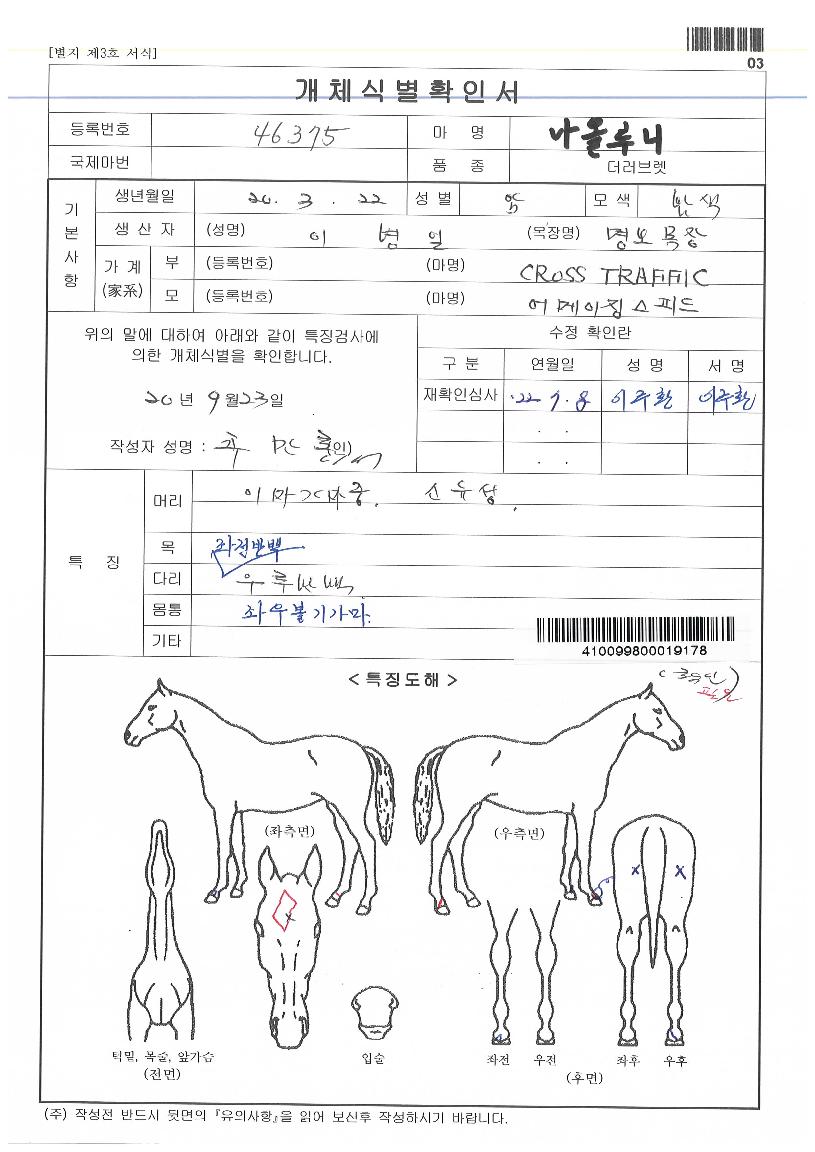 [별지 제3호 서식]
03
개체식별확인서
등록번호 46375 마 명 나올루니
국제마번 품 종 더러브렛
기본사항
생년월일 20. 3. 22 성별 암 모색 밤색
생산자 (성명) 이 병 일 (목장명) 명보목장
가계(家系) 부 (등록번호) (마명) CROSS TRAFFIC
모 (등록번호) (마명) 어메이징스피드
위의 말에 대하여 아래와 같이 특징검사에
의한 개체식별을 확인합니다.
20년 9월23일
작성자 성명 : (인)
수정 확인란
구 분 연월일 성 명 서 명
재확인심사 '22. 7. 8 이주환 이주환
. .
. .
특 징
머리
목
다리
몸통 좌우볼기가마.
기타
410099800019178
< 특징도해 >
(좌측면) (우측면)
턱밑, 목술, 앞가슴 입술 좌전 우전 좌후 우후
(전면) (후면)
(주) 작성전 반드시 뒷면의 『유의사항』을 읽어 보신후 작성하시기 바랍니다.